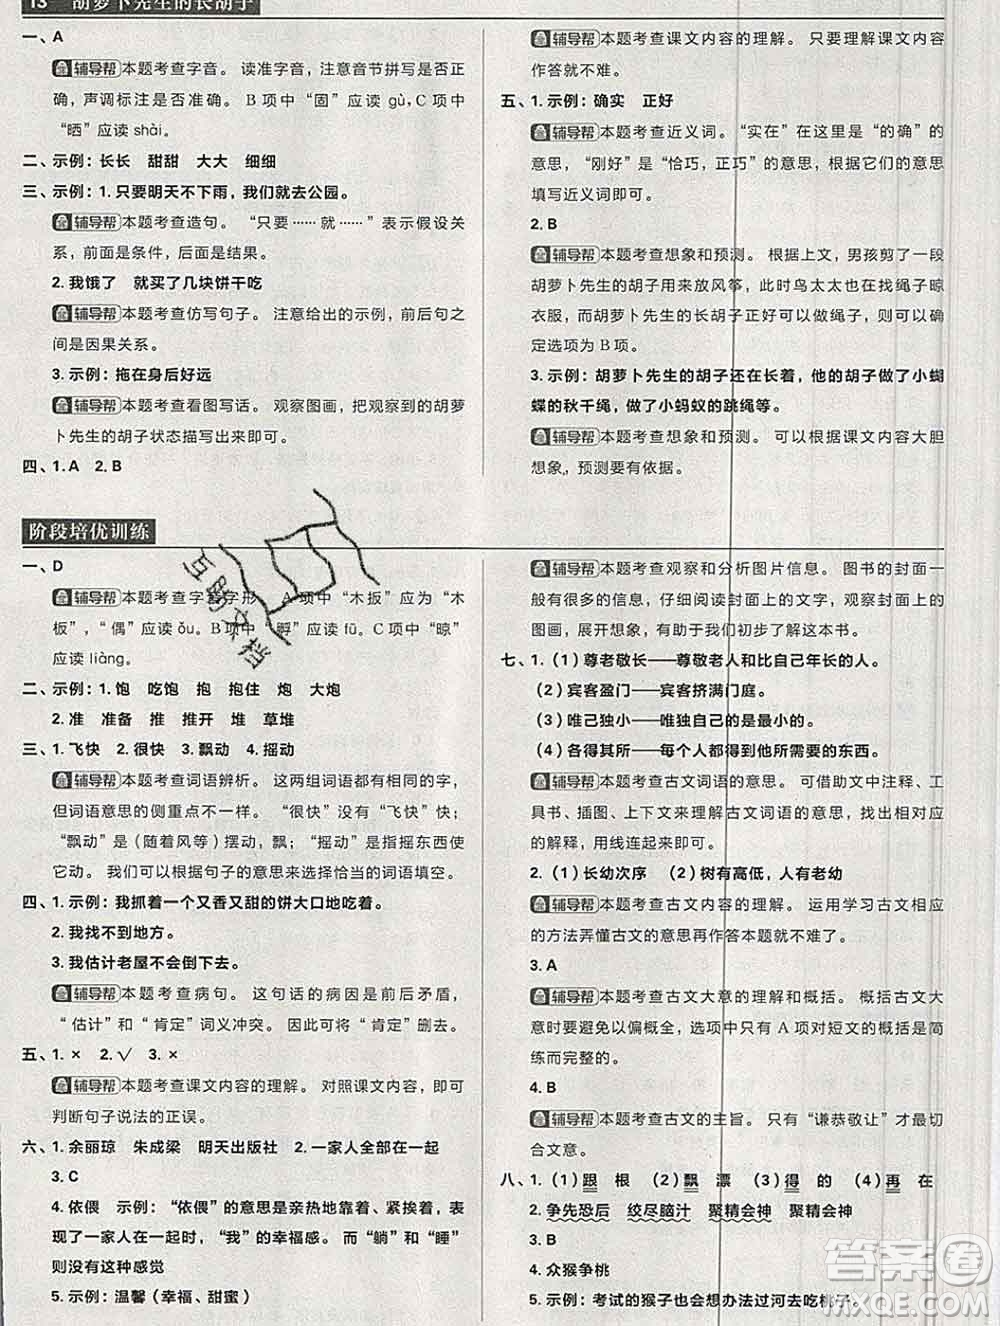 13 胡萝卜先生的长胡子
一、A
辅导帮 本题考查字音。读准字音，注意音节拼写是否正
确，声调标注是否准确。B 项中“固”应读 gù，C 项中
“晒”应读 shài。
二、示例：长长 甜甜 大大 细细
三、示例：1. 只要明天不下雨，我们就去公园。
辅导帮 本题考查造句。“只要……就……”表示假设关
系，前面是条件，后面是结果。
2. 我饿了 就买了几块饼干吃
辅导帮 本题考查仿写句子。注意给出的示例，前后句之
间是因果关系。
3. 示例：拖在身后好远
辅导帮 本题考查看图写话。观察图画，把观察到的胡萝
卜先生的胡子状态描写出来即可。
四、1. A 2. B
辅导帮 本题考查课文内容的理解。只要理解课文内容
作答就不难。
五、1. 示例：确实 正好
辅导帮 本题考查近义词。“实在”在这里是“的确”的
意思，“刚好”是“恰巧，正巧”的意思，根据它们的意思
填写近义词即可。
2. B
辅导帮 本题考查想象和预测。根据上文，男孩剪了一段
胡萝卜先生的胡子用来放风筝，此时鸟太太也在找绳子晾
衣服，而胡萝卜先生的长胡子正好可以做绳子，则可以确
定选项为 B 项。
3. 示例：胡萝卜先生的胡子还在长着，他的胡子做了小蝴
蝶的秋千绳，做了小蚂蚁的跳绳等。
辅导帮 本题考查想象和预测。可以根据课文内容大胆
想象，预测要有依据。
阶段培优训练
一、D
辅导帮 本题考查字音字形。A 项中“木扳”应为“木
板”，“偶”应读 ǒu。B 项中“孵”应读 fū。C 项中“晾”
应读 liàng。
二、示例：1. 饱 吃饱 抱 抱住 炮 大炮
2. 准 准备 推 推开 堆 草堆
三、1. 飞快 2. 很快 3. 飘动 4. 摇动
辅导帮 本题考查词语辨析。这两组词语都有相同的字，
但词语意思的侧重点不一样。“很快”没有“飞快”快；
“飘动”是（随着风等）摆动，飘；“摇动”是指摇东西使
它动。要根据句子的意思来选择恰当的词语填空。
四、1. 示例：我抓着一个又香又甜的饼大口地吃着。
2. 我找不到地方。
3. 我估计老屋不会倒下去。
辅导帮 本题考查病句。这句话的病因是前后矛盾，
“估计”和“肯定”词义冲突。要将“肯定”删去。
五、1. × 2. √ 3. ×
辅导帮 本题考查课文内容的理解。对照课文内容，即可
判断句子说法的正误。
六、1. 余丽琼 朱成梁 明天出版社 2. 一家人全部在一起
3. C
4. 依偎 示例：“依偎”的意思是亲热地靠着、紧挨着，更
有一家人在一起时，“我”的幸福感。而“躺”和“睡”
就没有这种感觉
5. 示例：温馨（幸福、甜蜜）
辅导帮 本题考查观察和分析图片信息。图书的封面一
般有很多的信息，仔细阅读封面上的文字，观察封面上的
图画，展开想象，有助于我们初步了解这本书。
七、1.（1）尊老敬长——尊敬老人和比自己年长的人。
（2）宾客盈门——宾客挤满门庭。
（3）唯己独小——唯独自己的是最小的。
（4）各得其所——每个人都得到他所需要的东西。
辅导帮 本题考查古文词语的意思。可借助文中注释、工
具书、插图、上下文来理解古文词语的意思，找出相对应
的解释，用线连起来即可。
2.（1）长幼次序 （2）树有高低，人有老幼
辅导帮 本题考查古文内容的理解。运用学习古文相应
的方法弄懂古文的意思再作答本题就不难了。
3. A
辅导帮 本题考查古文大意的理解和概括。概括古文大
意时要避免以偏概全，选项中只有 A 项对短文的概括是简
练而完整的。
4. B
辅导帮 本题考查古文的主旨。只有“谦恭敬让”才最切
合文意。
八、1.（1）跟 根 （2）飘 漂 （3）得 的 （4）再 在
2. 争先恐后 绞尽脑汁 聚精会神 聚精会神
3. B
4. 众猴争桃
5. 示例：考试的猴子也会想办法过河去吃桃子。
互动文档
答案圈
MXQE.COM